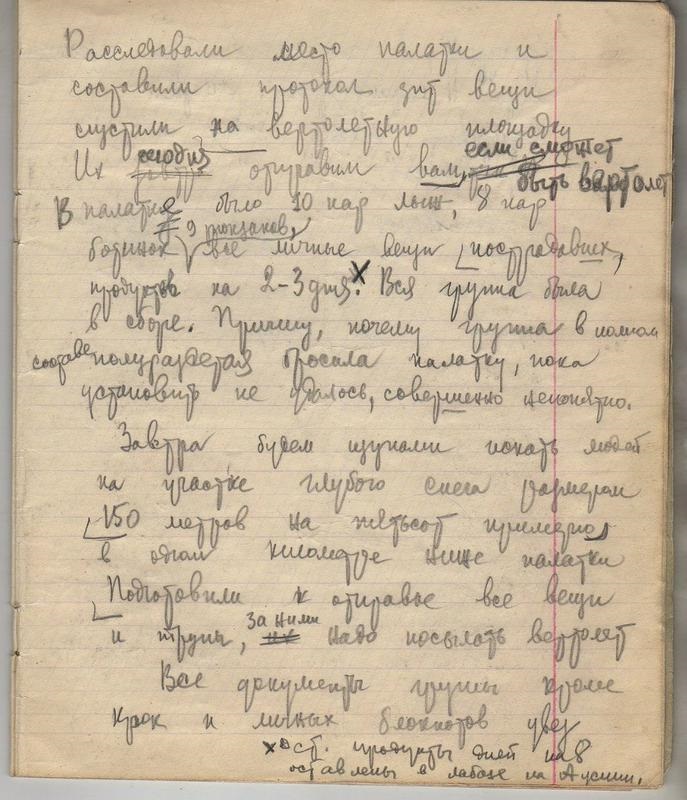 Расследовали место палатки и
составили протокол зпт вещи
спустили на вертолетную площадку
Их сегодня отправим вам, если сможет
быть вертолет
В палатке было 10 пар лыж, 8 пар
9 рюкзаков,
ботинок все личные вещи пострадавших,
продуктов на 2-3 дня. х Вся группа была
в сборе. Причину, почему группа в полном
составе полураздетая бросила палатку, пока
установить не удалось, совершенно непонятно.
Завтра будем щупами искать людей
на участке глубого снега размером
150 метров на пятьсот примерно
в одном километре ниже палатки
Подготовили к отправке все вещи
за ними
и трупы, надо посылать вертолет
Все документы группы кроме
крок и личных блокнотов увез
х Ост. продукты дней на 8
оставлены в лабазе на Ауспии.